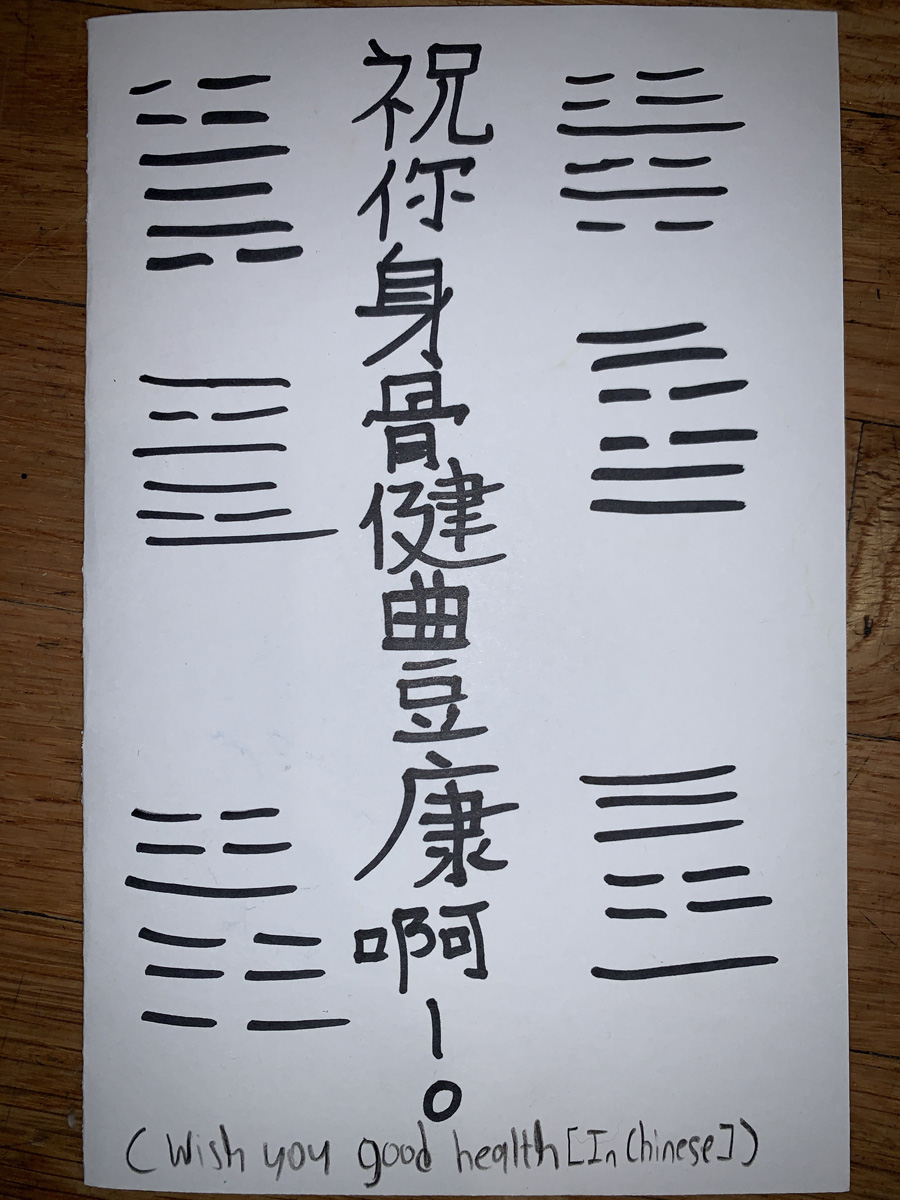 祝你身骨健曲豆康啊!
(Wish you good health [In Chinese])